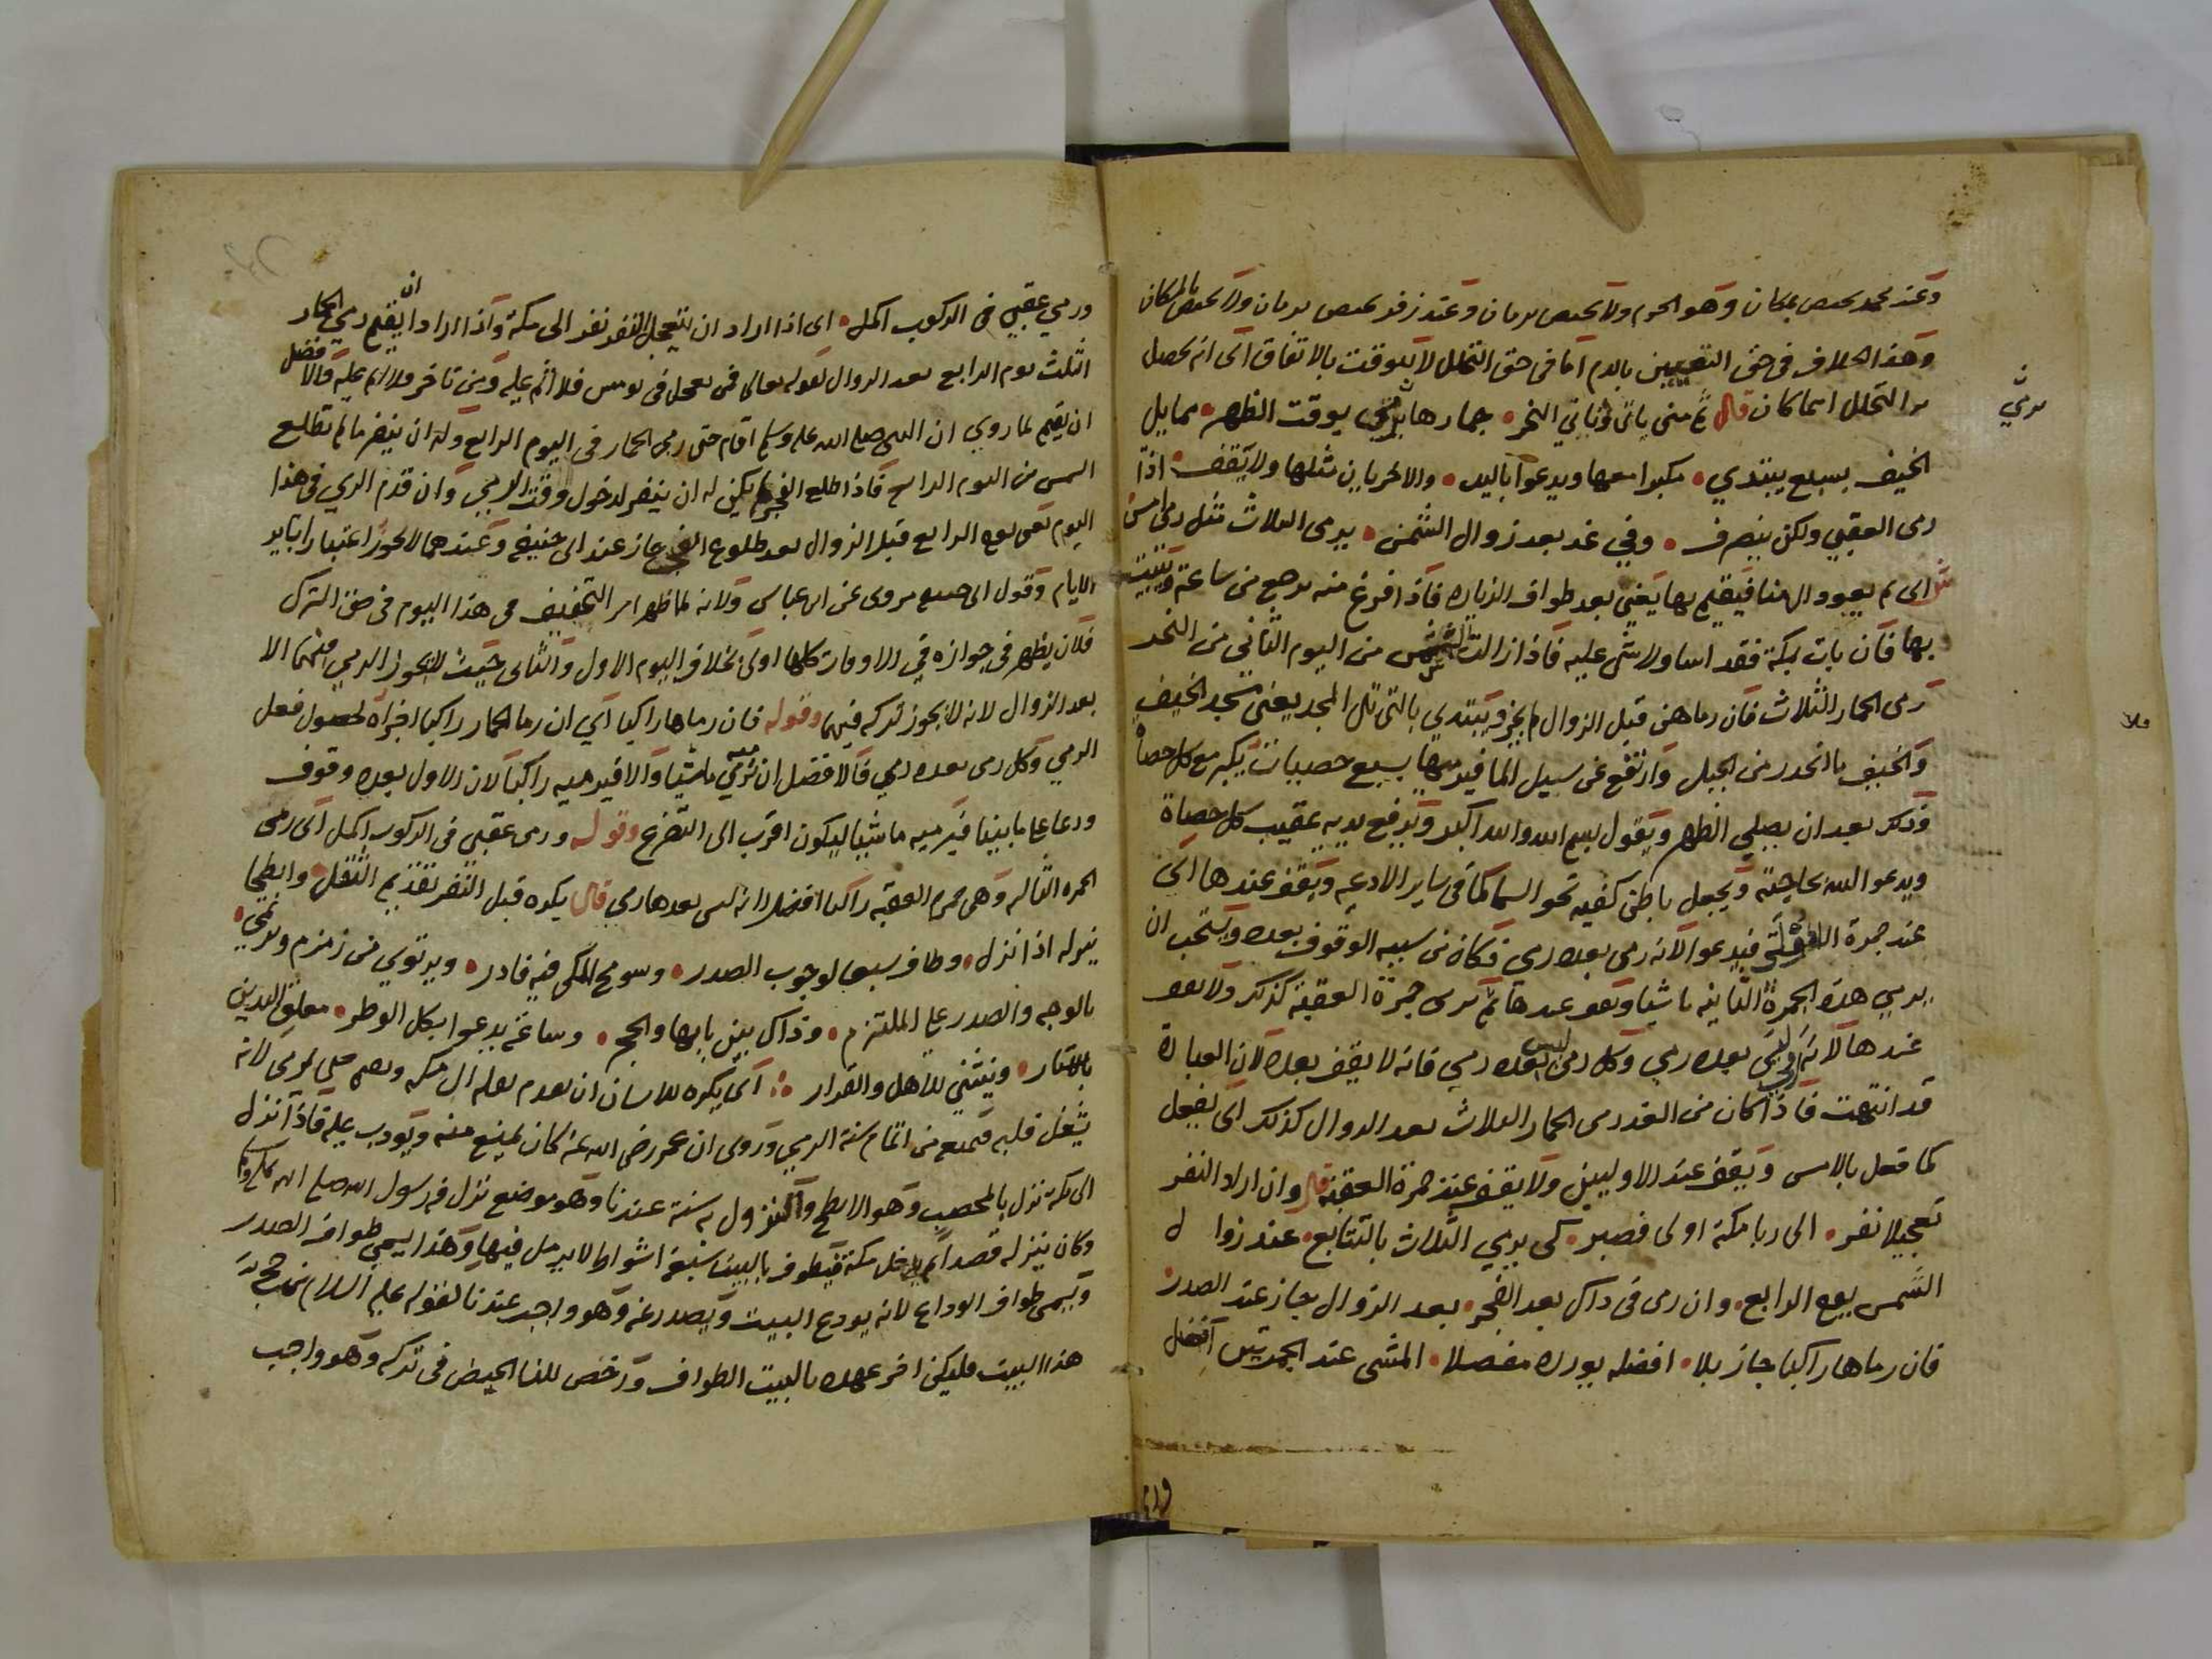 وعند محمد يختص بمكان وهو الحرم ولا يختص بزمان وعند زفر يختص بزمان ولا يختص بالمكان
وهذا الخلاف في حق التعيين بالدم اما في حق التحلل لا يتوقت بالاتفاق اى انه يحصل
به التحلل اينما كان قال ثم منى ياتى وثاني النحر جمارها يرمي بوقت الظهر مما يلي
الخيف بسبع يبتدي مكبرا معها ويدعوا باليد والاخريان مثلها ولا يقف اذا
رمى العقبى ولكن ينصرف وفي غد بعد زوال الشمس يرمى الثلاث مثل رمى امس
اى ثم يعود الى منا فيقيم بها يعنى بعد طواف الزيارة فاذا فرغ منه يرجع من ساعته ويبيت
بها فان بات بمكة فقد اسا ولا شى عليه فاذا زالت الشمس من اليوم الثاني من النحر
رمى الجمار الثلاث فان رماهن قبل الزوال لم يجز ويبتدي بالتى تلى المسجد يعنى مسجد الخيف
والخيف ما انحدر من الجبل وارتفع عن سبيل الما فيرميها بسبع حصيات يكبر مع كل حصاة
وذلك بعد ان يصلي الظهر ويقول بسم الله والله اكبر ويرفع يديه عقيب كل حصاة
ويدعو الله بحاجته ويجعل باطن كفيه نحو السما كما في ساير الادعيه ويقف عندها اى
عند جمرة الاولى فيدعوا لانه رمى بعده رمي فكان من سببه الوقوف بعده ويستحب ان
يرمي هذه الجمرة الثانيه ماشيا ويقف عندها ثم يرمى جمرة العقبة كذلك ولا يقف
عندها لانه ليس بعده رمي وكل رمى ليس بعده رمي فانه لا يقف بعده لان العبادة
قد انتهت فاذا كان من الغد رمى الجمار الثلاث بعد الزوال كذلك اى يفعل
كما فعل بالامس ويقف عند الاوليين ولا يقف عند جمرة العقبة قال وان اراد النفر
تعجيلا نفر الى ربا مكة اولى فصبر كى يرمي الثلاث بالتتابع عند زوال
الشمس يوم الرابع وان رمى فى ذاك بعد الفجر بعد الزوال جاز عند الصدر
فان رماها راكبا جاز بلا افضله يورده مفصلا المشى عند الجمرتين افضل
ورمي عقبى فى الركوب اكمل اى اذا اراد ان يتعجل النفر نفر الى مكة واذا اراد ان يقيم رمي الجمار
الثلث يوم الرابع بعد الزوال لقوله تعالى فمن تعجل فى يومين فلا اثم عليه ومن تاخر فلا اثم عليه والافضل
ان يقيم لما روي ان النبى صلى الله عليه وسلم اقام حتى رمى الجمار فى اليوم الرابع وله ان ينفر ما لم تطلع
الشمس من اليوم الرابع فاذا طلع الفجر لم يكن له ان ينفر لدخول وقت الرمي وان قدم الرمي في هذا
اليوم يعنى يوم الرابع قبل الزوال بعد طلوع الفجر جاز عند ابى حنيفة وعندهما لا يجوز اعتبارا بساير
الايام وقول ابى حنيفة مروى عن ابن عباس ولانه لما ظهر اثر التخفيف فى هذا اليوم فى حق الترك
فلان يظهر في جوازه في الاوقات كلها اولى بخلاف اليوم الاول والثانى حيث لا يجوز الرمي فيهما الا
بعد الزوال لانه لا يجوز تركه فيهما وقوله فان رماها راكبا اي ان رما الجمار راكبا اجزاه لحصول فعل
الرمي وكل رمى بعده رمي فالافضل ان يرميه ماشيا والا فيرميه راكبا لان الاول بعده وقوف
ودعا على ما بينا فيرميه ماشيا ليكون اقرب الى التضرع وقوله ورمى عقبى فى الركوب اكمل اى رمى
الجمرة الثالثة وهى جمرة العقبة راكبا افضل لانه ليس بعدها رمي قال يكره قبل النفر تقديم الثقل وابطحا
ينزله اذا نزل وطاف سبعا لوجوب الصدر وسومح المكى فيه فادر ويرتوي من زمزم ويرتمي
بالوجه والصدر على الملتزم وذاك بين بابها والحجر وساعة يدعوا بكل الوطر معلق اليدين
بالاستار وينثني للاهل والقرار اى يكره للانسان ان يقدم ثقله الى مكه ويقيم حتى يرمى لانه
يشغل قلبه فيمنع من اتمام سنة الرمي وروى ان عمر رضى الله عنه كان يمنع منه ويؤدب عليه فاذا نزل
الى مكة نزل بالمحصب وهو الابطح والنزول به سنة عندنا وهو موضع نزل فيه رسول الله صلى الله عليه وسلم
وكان ينزله قصدا ثم يدخل مكة فيطوف بالبيت سبعة اشواط لا يرمل فيها وهذا يسمى طواف الصدر
ويسمى طواف الوداع لانه يودع البيت ويصدر عنه وهو واجب عندنا لقوله عليه السلام من حج
هذا البيت فليكن اخر عهده بالبيت الطواف ورخص للنسا الحيض فى تركه وهو واجب